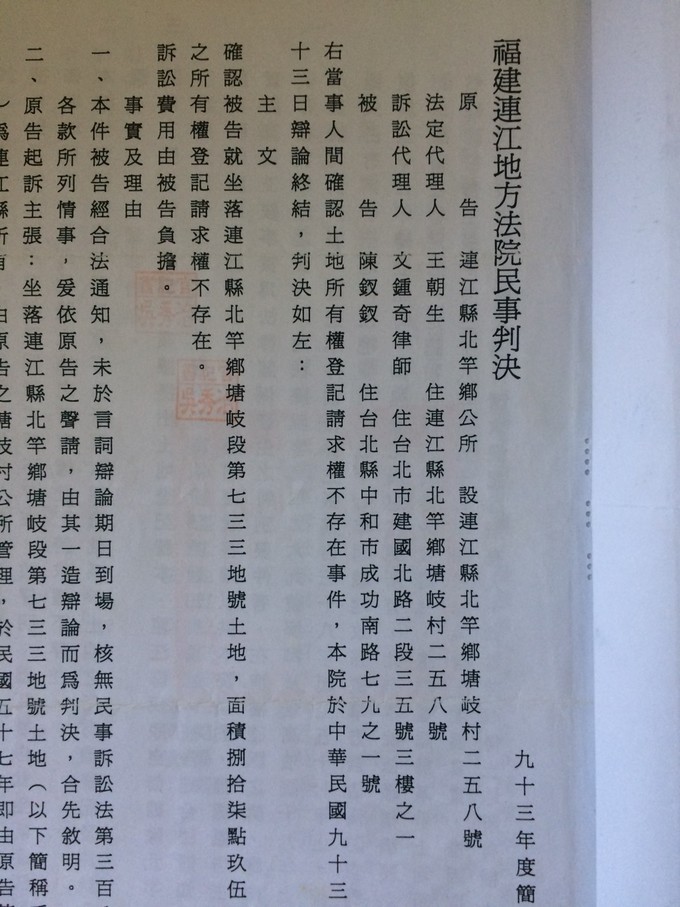 福建連江地方法院民事判決
九十三年度簡
原　　告　連江縣北竿鄉公所　設連江縣北竿鄉塘岐村二五八號
法定代理人　王朝生　住連江縣北竿鄉塘岐村二五八號
訴訟代理人　文鍾奇律師　住台北市建國北路二段三五號三樓之一
被　　告　陳釵釵　住台北縣中和市成功南路七九之一號
右當事人間確認土地所有權登記請求權不存在事件，本院於中華民國九十三
十三日辯論終結，判決如左：
主　文
確認被告就坐落連江縣北竿鄉塘岐段第七三三地號土地，面積捌拾柒點玖伍
之所有權登記請求權不存在。
訴訟費用由被告負擔。
事實及理由
一、本件被告經合法通知，未於言詞辯論期日到場，核無民事訴訟法第三百
各款所列情事，爰依原告之聲請，由其一造辯論而為判決，合先敘明。
二、原告起訴主張：坐落連江縣北竿鄉塘岐段第七三三地號土地（以下簡稱
為連江縣所有，由原告之塘岐村公所管理，於民國五十七年即由原告